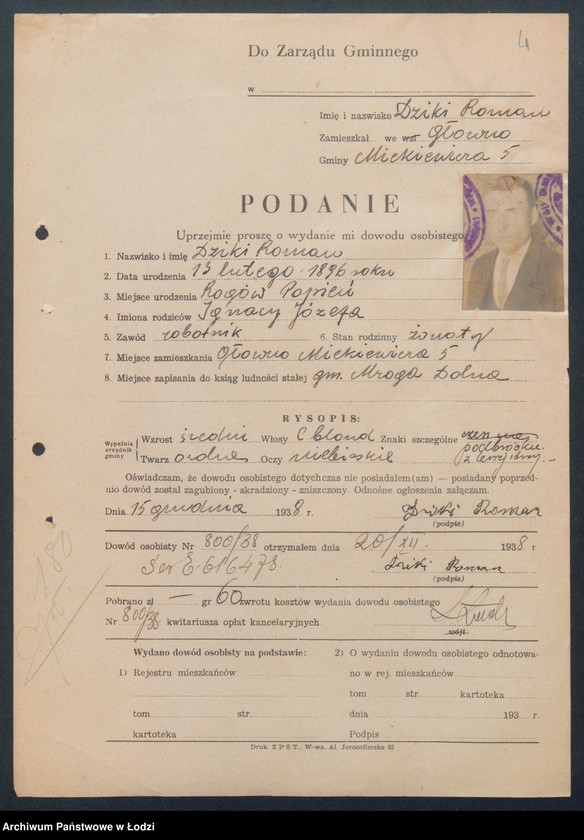 4
Do Zarządu Gminnego
w
Imię i nazwisko Dziki Roman
Zamieszkał we wsi Głowno
Gminy Mickiewicza 5
PODANIE
Uprzejmie proszę o wydanie mi dowodu osobistego
1. Nazwisko i imię Dziki Roman
2. Data urodzenia 13 lutego 1896 roku
3. Miejsce urodzenia Rogów Popień
4. Imiona rodziców Ignacy Józefa
5. Zawód robotnik 6. Stan rodzinny żonaty
7. Miejsce zamieszkania Głowno Mickiewicza 5
8. Miejsce zapisania do ksiąg ludności stałej gm. Mroga Dolna
RYSOPIS:
Wypełnia urzędnik gminy
Wzrost średni Włosy C blond Znaki szczególne
podbródku
z lewej strony.
Twarz Oczy niebieskie
Oświadczam, że dowodu osobistego dotychczas nie posiadałem(am) — posiadany poprzed-
nio dowód został zagubiony - skradziony - zniszczony. Odnośne ogłoszenia załączam.
Dnia 15 grudnia 1938 r. Dziki Roman
(podpis)
Dowód osobisty Nr 800/38 otrzymałem dnia 20/XII. 1938 r.
Ser E. 616478. Dziki Roman
(podpis)
Pobrano zł — gr 60 zwrotu kosztów wydania dowodu osobistego
Nr 800/38 kwitariusza opłat kancelaryjnych
wójt
Wydano dowód osobisty na podstawie:
1) Rejestru mieszkańców
tom str.
kartoteka
2) O wydaniu dowodu osobistego odnotowa-
no w rej. mieszkańców
tom str. kartoteka
dnia 193 r.
Podpis
Druk. ZPST., W-wa, Al. Jerozolimska 85
Archiwum Państwowe w Łodzi